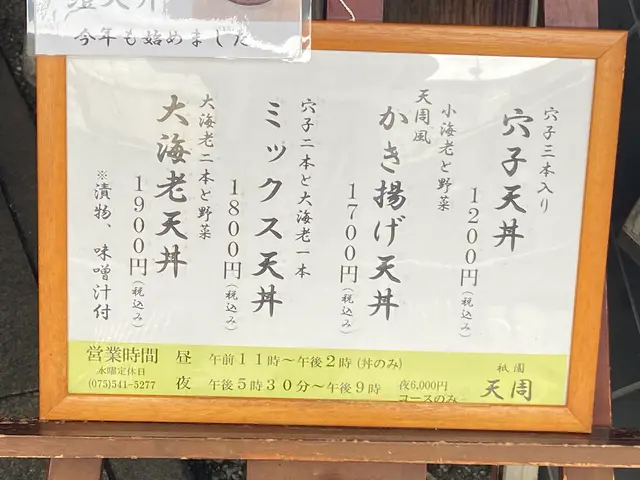 今年も始めました
穴子三本入り
穴子天丼
1200円(税込み)
小海老と野菜
天周風
かき揚げ天丼
1700円(税込み)
穴子二本と大海老一本
ミックス天丼
1800円(税込み)
大海老二本と野菜
大海老天丼
1900円(税込み)
※漬物、味噌汁付
営業時間 昼 午前11時〜午後2時(丼のみ)
水曜定休日
(075)541-5277
夜 午後5時30分〜午後9時 夜6,000円
コースのみ
祇園
天周